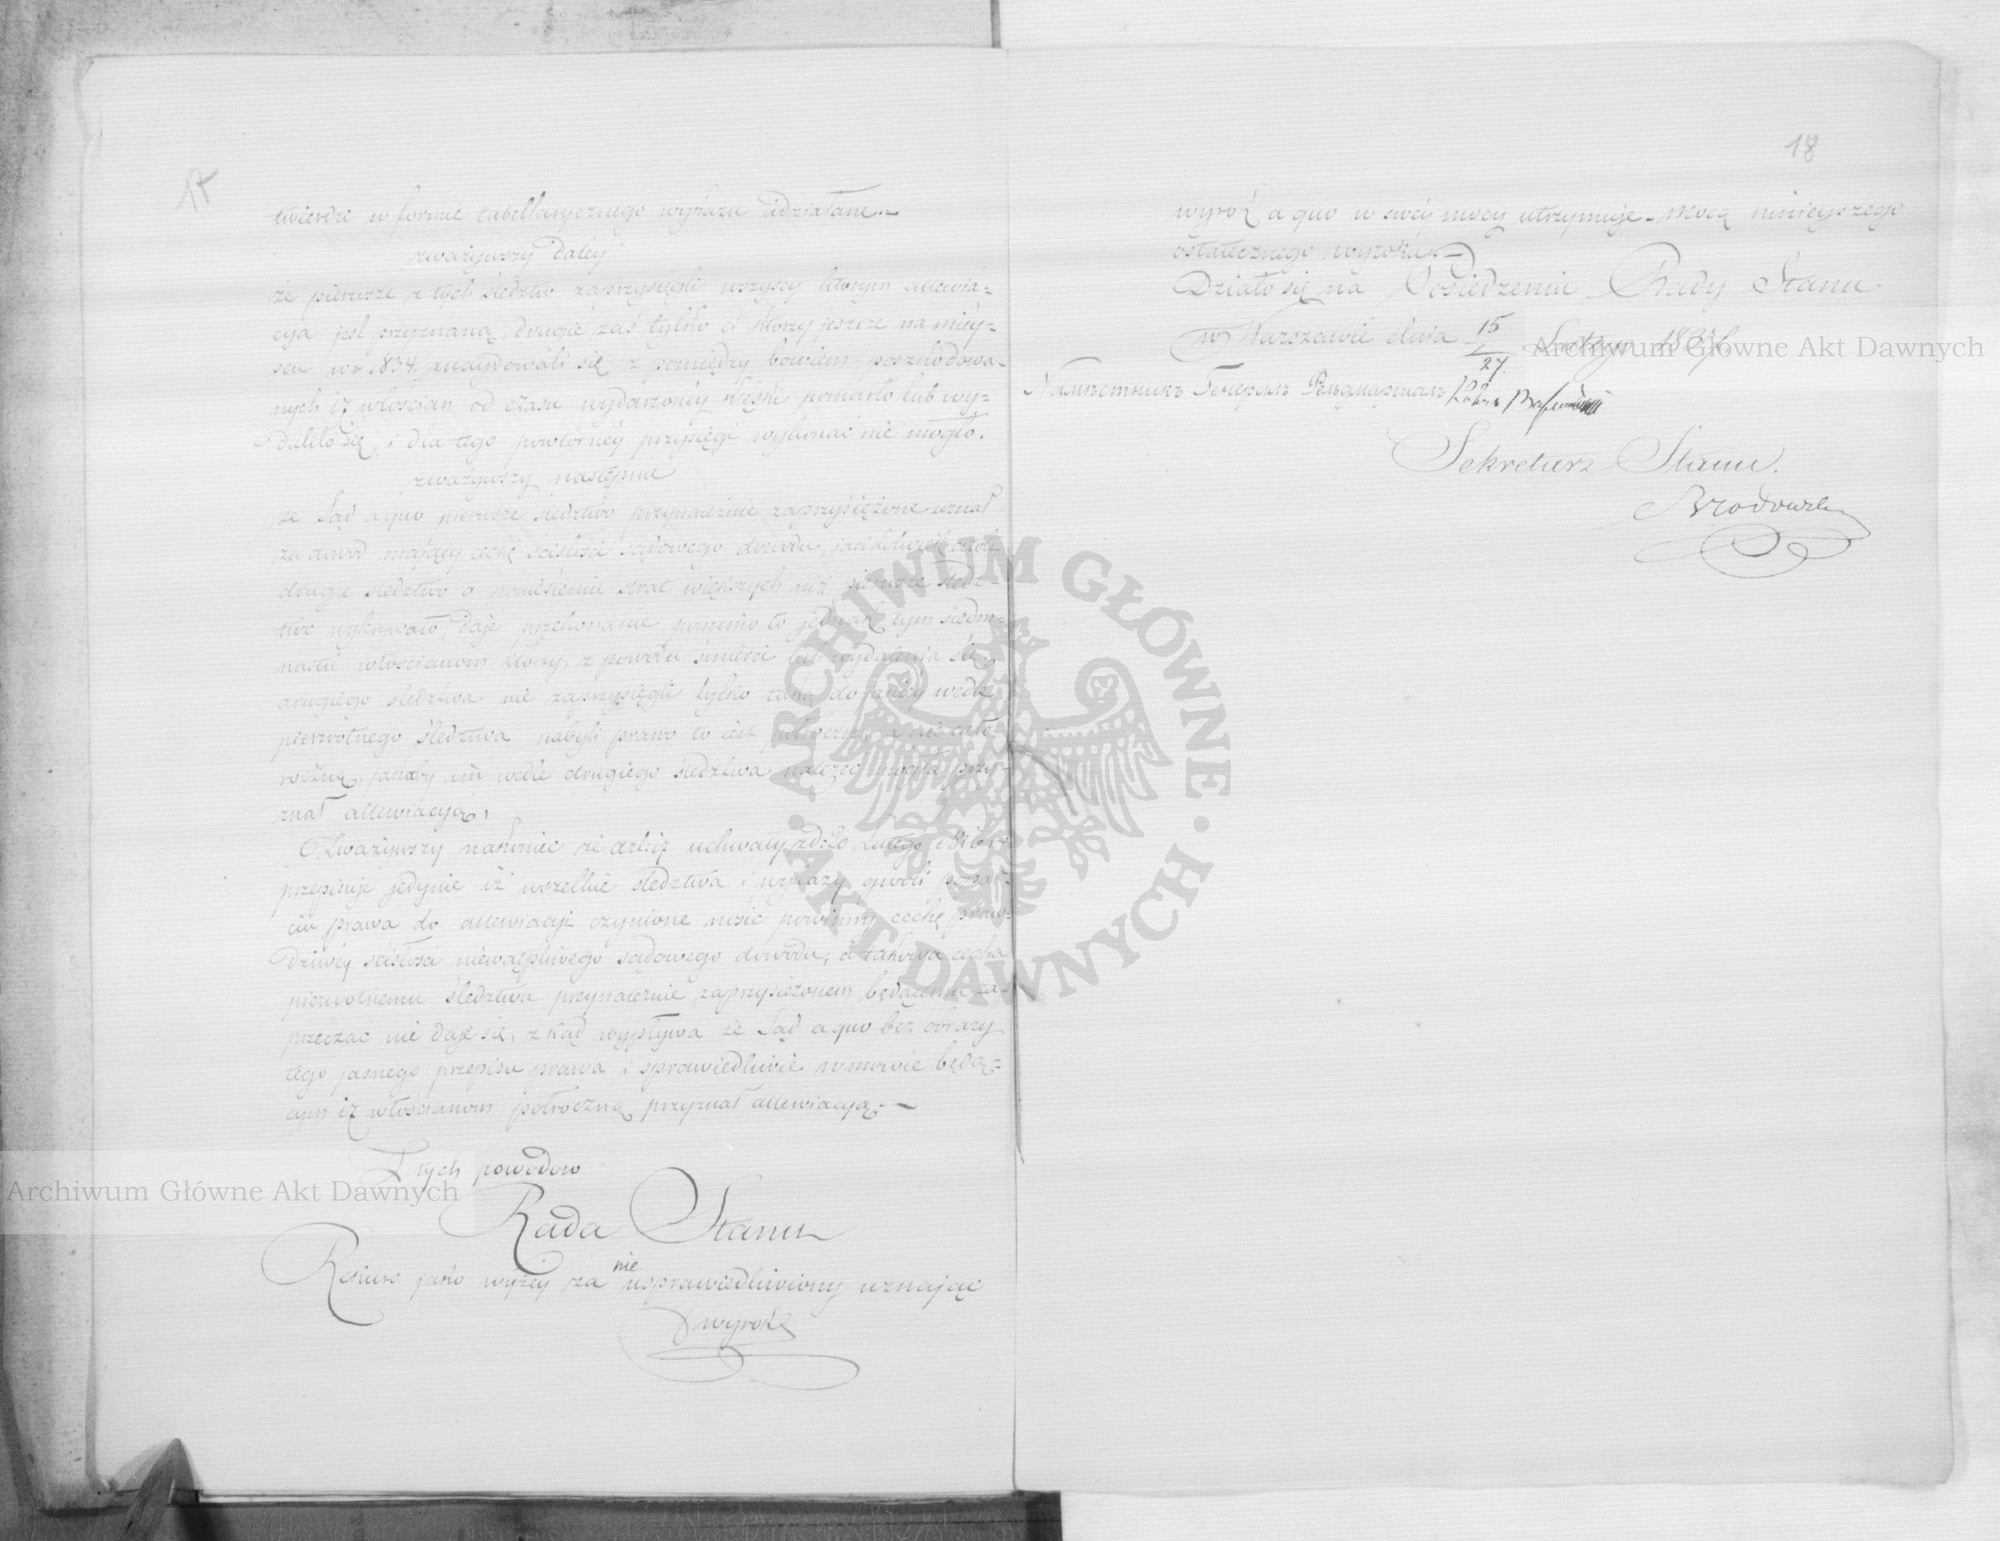 17
twierdzi w formie tabellarycznego wykazu zdziałane.—
zważywszy daléy
że pierwsze z tych śledztw zaprzysięgli wszyscy którym allewia=
cya jest przyznaną, drugie zaś tylko ci którzy jeszcze na miey=
scu w r. 834 znaydowali się z pomiędzy bowiem poszkodowa=
nych iż włościan od czasu wydarzonéy klęski pomarło lub wy=
daliło się, i dla tego powtórnéy przysięgi wykonać nie mogło.
zważywszy następnie
że Sąd a quo pierwsze śledztwo przynależnie zaprzysiężone uznał
za dowód mający cechę ścisłości sądowego dowodu, jakkolwiek
drugie śledztwo o poniesieniu strat większych niż pierwsze śledz=
two wykrywało, daje przekonanie pomimo to jednak tym siedm=
nastu włościanom którzy, z powodu śmierci lub wydalenia się
drugiego śledztwa nie zaprzysięgli tylko taką do jakiey wedle
pierwotnego śledztwa nabyli prawo to jest półroczną, a nie cało=
roczną, jakaby im wedle drugiego śledztwa należeć mogła przy=
znał allewiacyą,
Zważywszy nakoniec że uchwały z d: 20 Lutego 1816 r
przepisuje jedynie iż wszelkie śledztwa i wykazy gwoli
cia prawa do allewiacyi czynione nosić powinny cechę praw=
dziwéy ścisłości niewątpliwego sądowego dowodu, a takowa cecha
pierwotnemu śledztwu przynależnie zaprzysiężonem będącemu za=
przeczać nie daje się, z kąd wypływa że Sąd a quo bez obrazy
tego jasnego przepisu prawa i sprawiedliwie w mowie będą=
cym iż włościanom półroczną przyznał allewiacyą.—
Z tych powodów
Rada Stanu
Rekurs jako wyżéy za nie usprawiedliwiony uznając
wyrok
18
wyrok a quo w swéy mocy utrzymuje—mocą ninieyszego
ostatecznego wyroku.—
Działo się na Posiedzeniu Rady Stanu
w Warszawie dnia 15/27 Lutego 1837 r.
Намѣстникъ Генералъ Фельдмаршалъ
Sekretarz Stanu.
Brodowski
Archiwum Główne Akt Dawnych
Archiwum Główne Akt Dawnych
· ARCHIWUM GŁÓWNE · AKT DAWNYCH